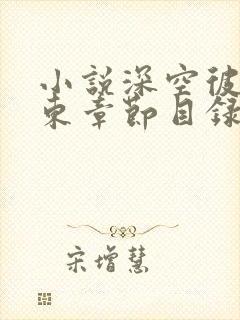 小説深空彼
東章節目録
宋增慧